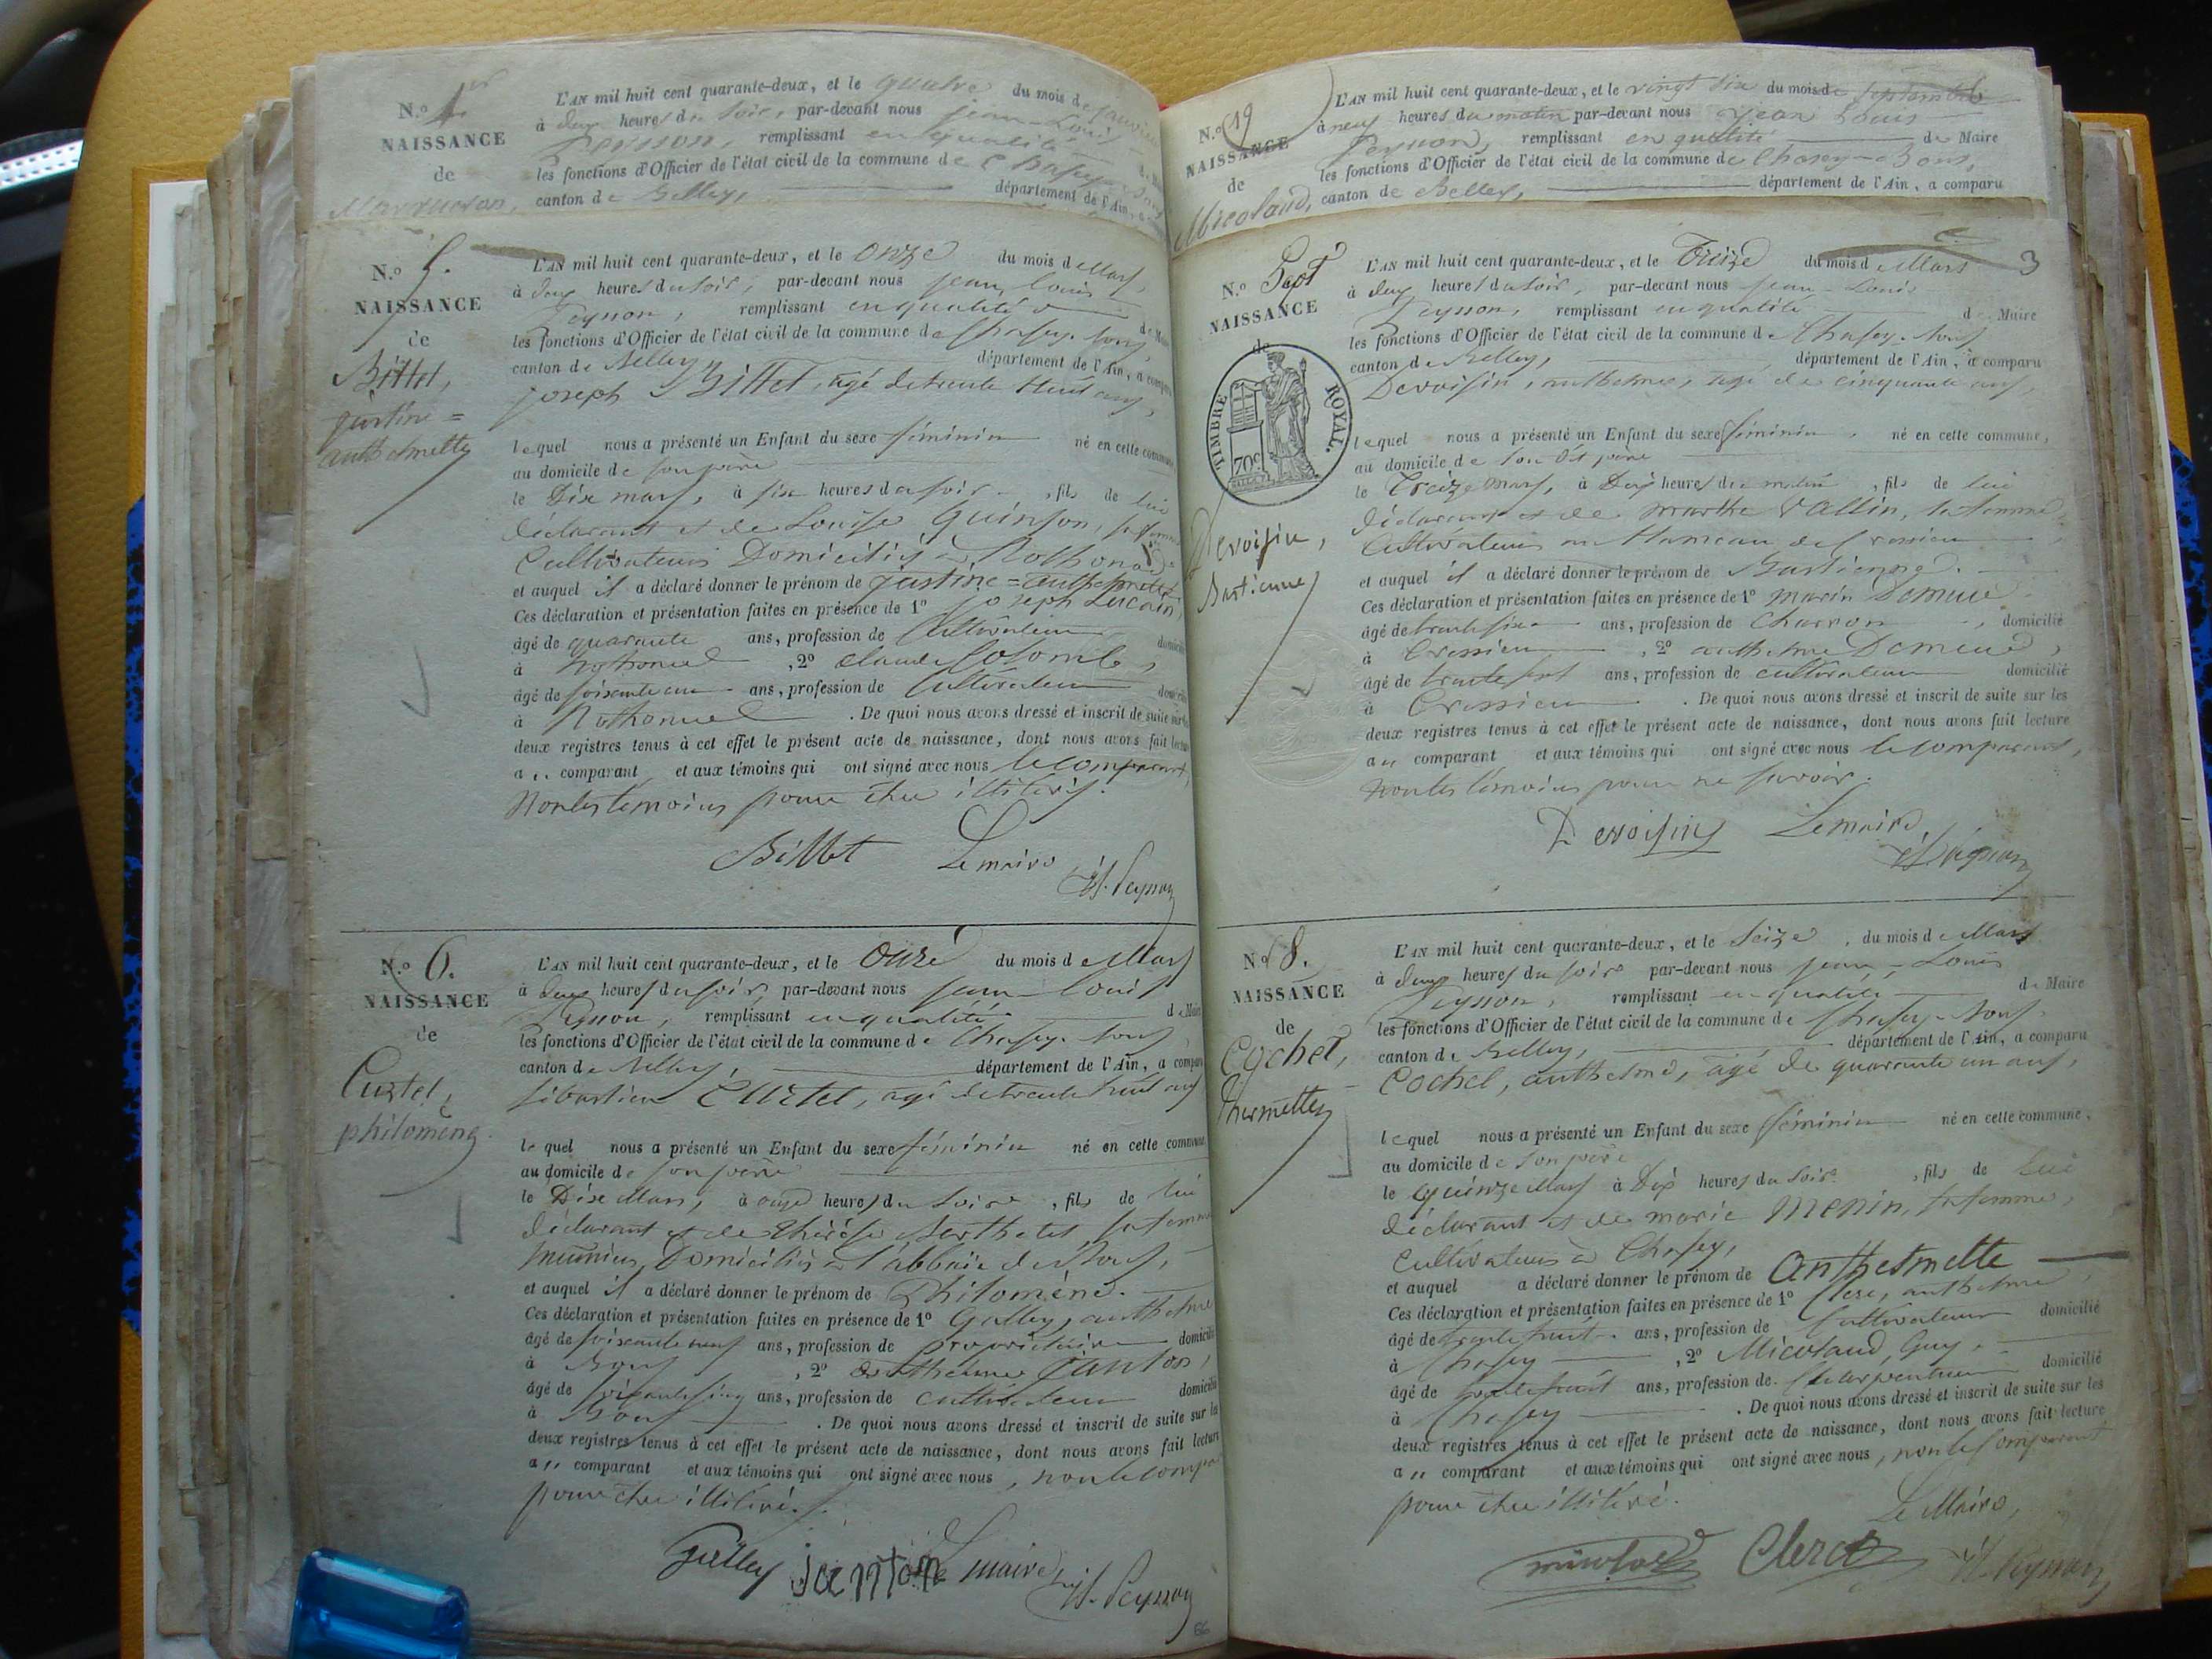 N.o 1er
NAISSANCE
de
L'AN mil huit cent quarante-deux, et le quatre du mois de janvier
à deux heures du soir, par-devant nous jean-Louis
Peysson, remplissant en qualité
les fonctions d'Officier de l'état civil de la commune de Chasey
canton de Belley, département de l'Ain,
N.o 5.
NAISSANCE
de
Billet,
justine =
anthelmette
L'AN mil huit cent quarante-deux, et le onze du mois de Mars,
à deux heures du soir, par-devant nous jean Louis
Peysson, remplissant en qualité de Maire
les fonctions d'Officier de l'état civil de la commune de Chasey-bons,
canton de Belley, département de l'Ain, a comparu
joseph Billet, agé de trente huit ans,
lequel nous a présenté un Enfant du sexe féminin né en cette commune,
au domicile de son père
le Dix mars, à six heures du soir, fils de lui
déclarant et de Louise Quinson, sa femme
Cultivateurs Domiciliés à Rothonod
et auquel il a déclaré donner le prénom de justine = anthelmette
Ces déclaration et présentation faites en présence de 1o joseph
âgé de quarante ans, profession de Cultivateur domicilié
à , 2o claude Colomb,
âgé de soixante un ans, profession de Cultivateur domicilié
à . De quoi nous avons dressé et inscrit de suite sur les
deux registres tenus à cet effet le présent acte de naissance, dont nous avons fait lecture
au comparant et aux témoins qui ont signé avec nous le comparant,
non les temoins pour être illitérés.
Billet Le maire
J.L. Peysson
N.o 6.
NAISSANCE
de
Curtel,
philomène
L'AN mil huit cent quarante-deux, et le Onze du mois de Mars
à deux heures du soir, par-devant nous jean Louis
Peysson, remplissant en qualité de Maire
les fonctions d'Officier de l'état civil de la commune de Chasey-bons
canton de Belley, département de l'Ain, a comparu
sébastien Curtel, agé de trente huit ans
lequel nous a présenté un Enfant du sexe féminin né en cette commune
au domicile de son père
le Dix Mars, à onze heures du Soir, fils de lui
déclarant et de thérèse Berthelet, sa femme
meuniers, Domiciliés à l'abbaïe de Bons,
et auquel il a déclaré donner le prénom de Philomène.
Ces déclaration et présentation faites en présence de 1o Galley, anthelme
âgé de soixante neuf ans, profession de propriétaire domicilié
à Bons, 2o anthelme janton,
âgé de ans, profession de cultivateur domicilié
à Bons. De quoi nous avons dressé et inscrit de suite sur les
deux registres tenus à cet effet le présent acte de naissance, dont nous avons fait lecture
au comparant et aux témoins qui ont signé avec nous, non le compar
pour être illitéré.
Galley janton Le maire,
J.L. Peysson
N.o 19
NAISSANCE
de
Micoland,
L'AN mil huit cent quarante-deux, et le vingt six du mois de septembre
à neuf heures du matin par-devant nous jean Louis
Peysson, remplissant en qualité de Maire
les fonctions d'Officier de l'état civil de la commune de Chasey-Bons,
canton de Belley, département de l'Ain, a comparu
3
N.o Sept
NAISSANCE
de
TIMBRE ROYAL.
70c
Devoisin,
Bastienne
L'AN mil huit cent quarante-deux, et le Treize du mois de Mars
à deux heures du soir, par-devant nous jean-Louis
Peysson, remplissant en qualité de Maire
les fonctions d'Officier de l'état civil de la commune de Chasey-bons
canton de Belley, département de l'Ain, a comparu
Devoisin, anthelme, agé de cinquante ans,
lequel nous a présenté un Enfant du sexe féminin, né en cette commune,
au domicile de son dit père
le Treize mars, à Dix heures du matin, fils de lui
déclarant et de marthe Vallin, sa femme,
Cultivateurs au Hameau de Cressieu
et auquel il a déclaré donner le prénom de Bastienne.
Ces déclaration et présentation faites en présence de 1o marin Domeue
âgé de trente six ans, profession de Charron, domicilié
à Cressieu, 2o anthelme Domeue,
âgé de trente sept ans, profession de cultivateur domicilié
à Cressieu. De quoi nous avons dressé et inscrit de suite sur les
deux registres tenus à cet effet le présent acte de naissance, dont nous avons fait lecture
au comparant et aux témoins qui ont signé avec nous le comparant,
non les témoins pour ne savoir.
Devoisin Le maire,
N.o 8.
NAISSANCE
de
Cochet,
thermette
L'AN mil huit cent quarante-deux, et le Seize, du mois de Mars
à deux heures du soir par-devant nous jean-Louis
Peysson, remplissant en qualité de Maire
les fonctions d'Officier de l'état civil de la commune de Chasey-bons
canton de Belley, département de l'Ain, a comparu
Cochet, anthelme, agé de quarante un ans,
lequel nous a présenté un Enfant du sexe féminin né en cette commune,
au domicile de son père
le quinze Mars à Dix heures du soir, fils de lui
déclarant et de marie Menin, sa femme,
Cultivateurs à Chasey,
et auquel a déclaré donner le prénom de anthelmette
Ces déclaration et présentation faites en présence de 1o Clerc, anthelme,
âgé de trente huit ans, profession de Cultivateur domicilié
à Chasey, 2o Micoland, Guy,
âgé de trente huit ans, profession de Charpentier domicilié
à Chasey. De quoi nous avons dressé et inscrit de suite sur les
deux registres tenus à cet effet le présent acte de naissance, dont nous avons fait lecture
au comparant et aux témoins qui ont signé avec nous, non le comparant
pour être illitéré.
Le Maire,
micoland Clerc J.L. Peysson